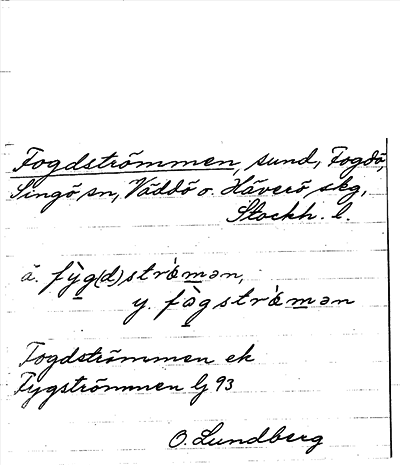 Fogdströmmen, sund, Fogdö,
Singö sn, Väddö o. Häverö skg,
Stockh. l.
ä. fỳg(d)strǿmən,
y. fàgstrǿmən
Fogdströmmen ek
Fygströmmen lj 93
O. Lundberg